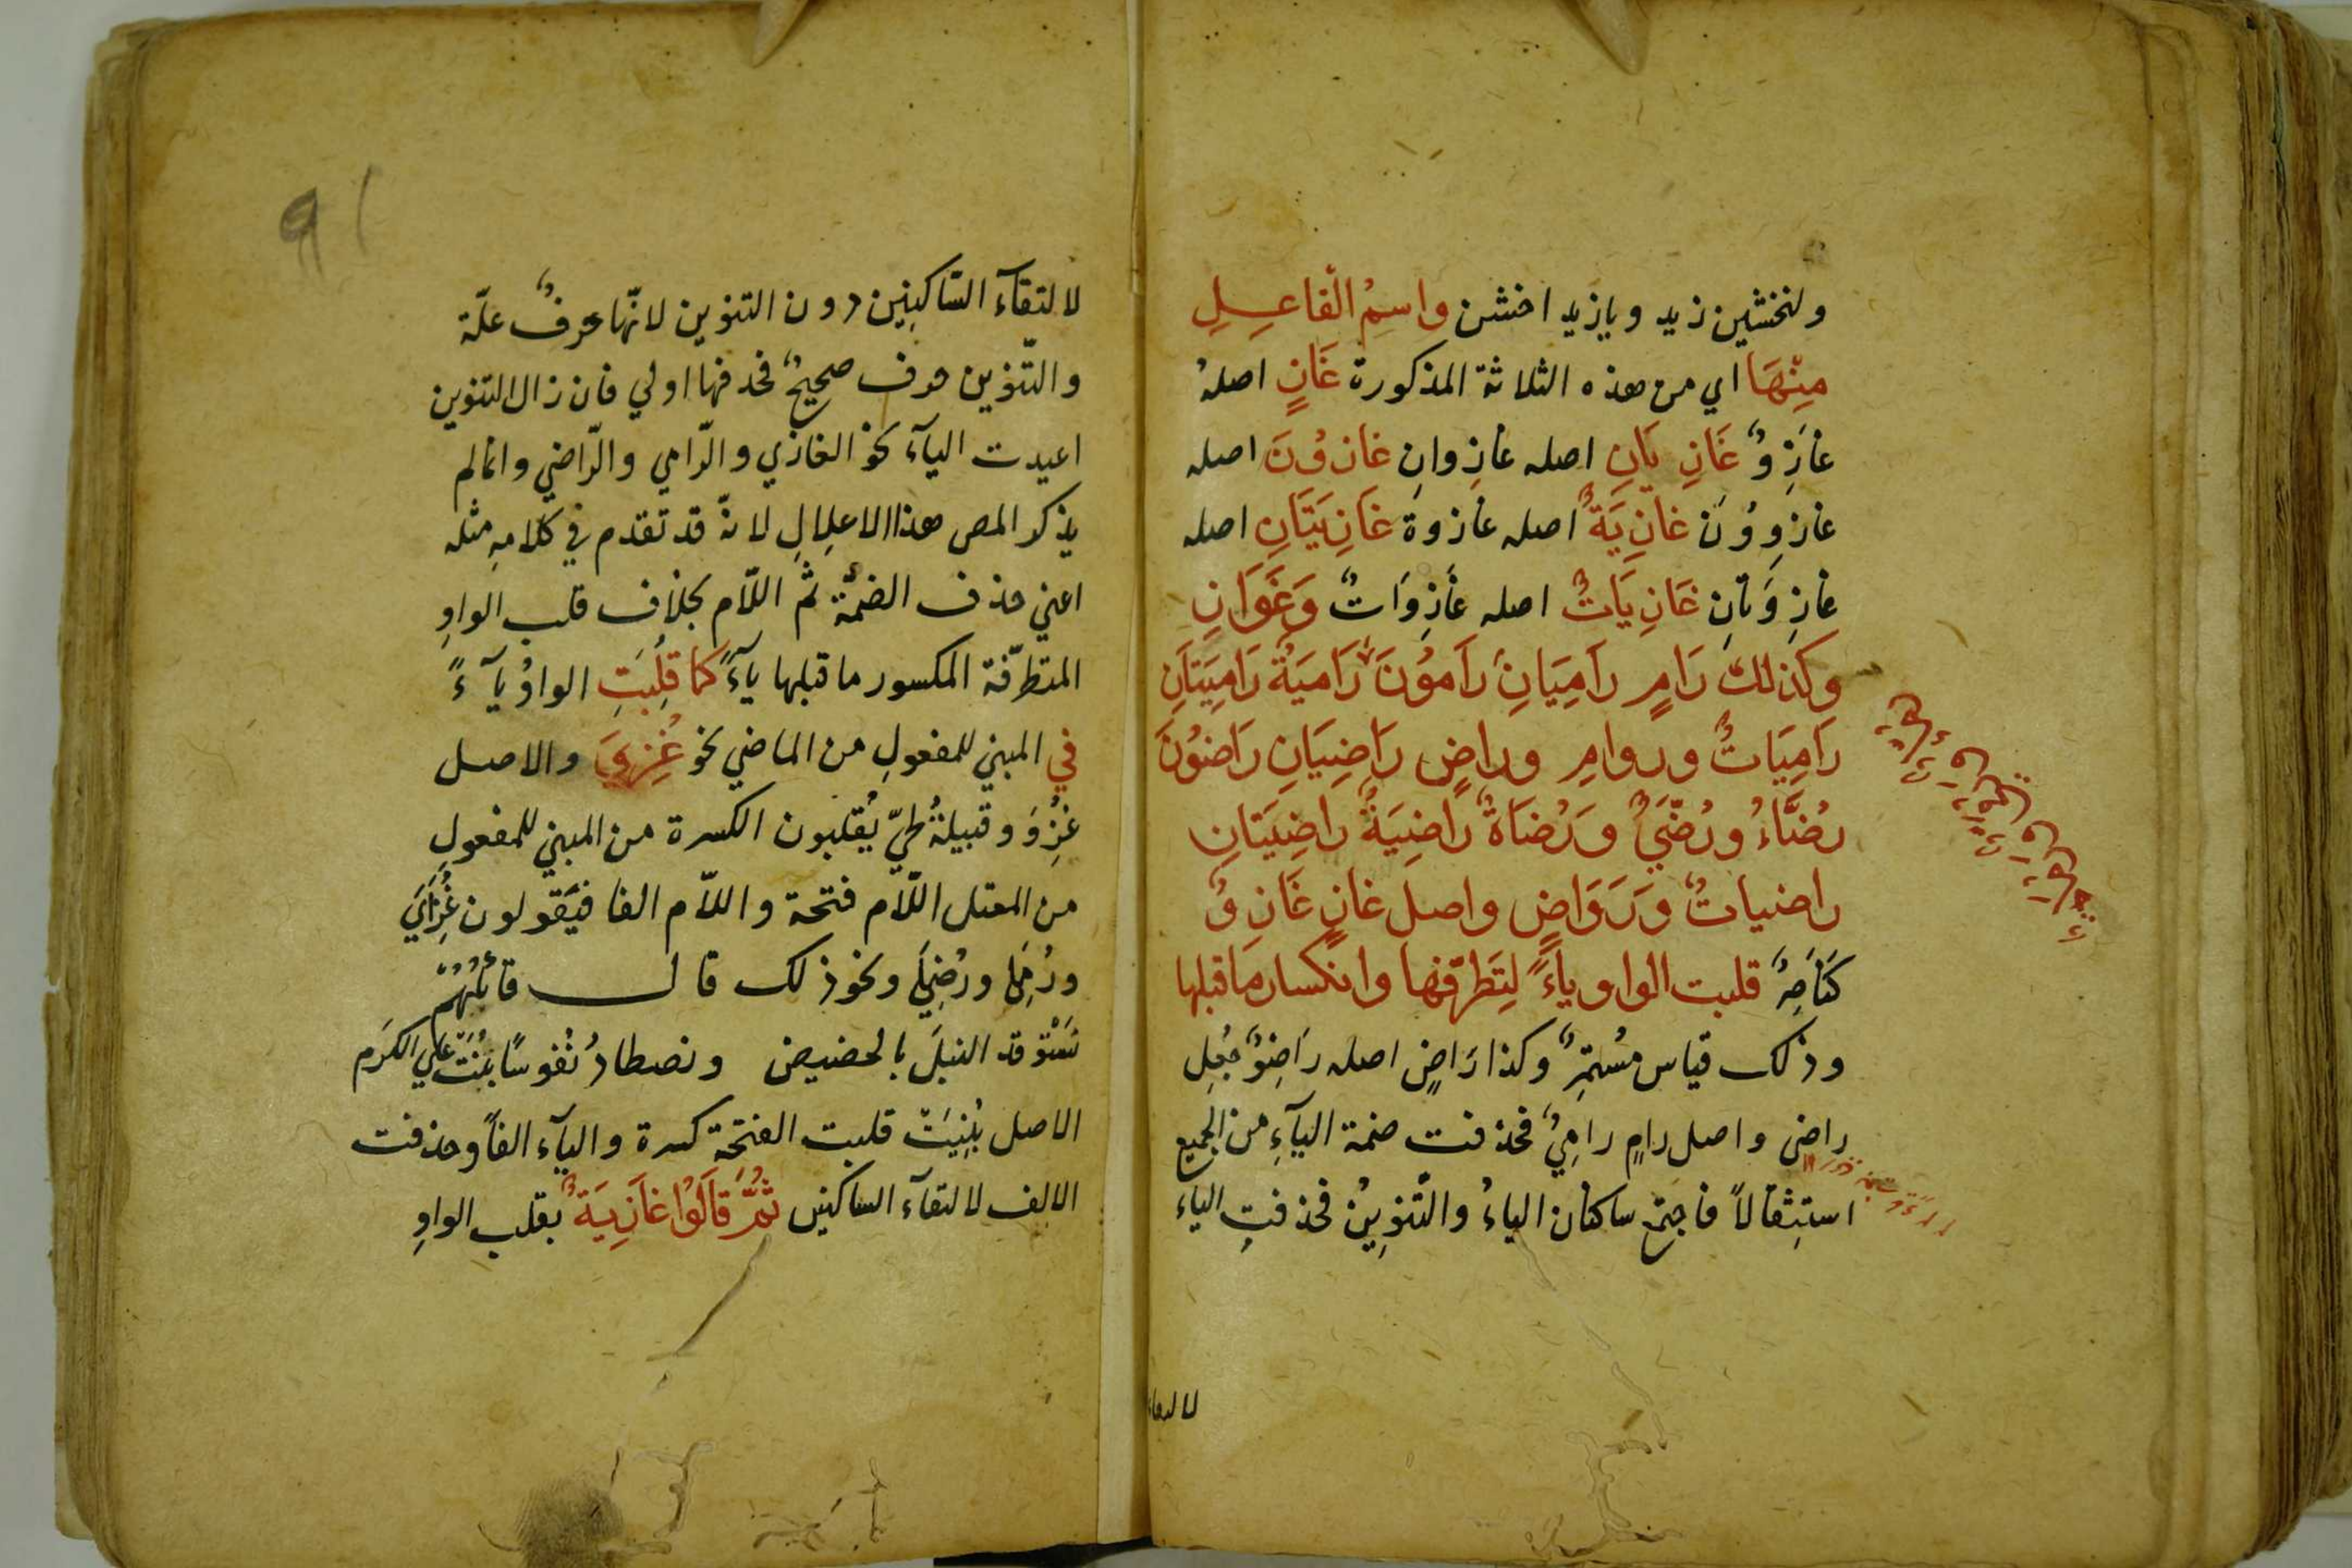 ولتخشين زيد ويا زيد اخشن واسمُ الْفاعِلِ
مِنْهَا اي من هذه الثلاثة المذكورة غَازٍ اصلهُ
غازِوٌ غَازِيَانِ اصله غازِوانِ غازُونَ اصله
غازِوُونَ غازِيَةٌ اصله غازوة غَازِيَتَانِ اصله
غازِوَتانِ غَازِيَاتٌ اصله غازِوَاتٌ وَغَوَازٍ
وكذلك رَامٍ رامِيَانِ رَامُونَ رَامِيَةٌ رَامِيَتَانِ
رَامِيَاتٌ وروامٍ وراضٍ رَاضِيَانِ رَاضُونَ
رُضَّاءُ ورُضَّيٌ وَرُضَاةٌ رَاضِيَةٌ راضِيَتَانِ
راضياتٌ وَرَوَاضٍ واصل غازٍ غَازِوٌ
كَنَاصِرٌ قلبت الواو ياءً لِتَطرّفها وانكسار مَا قبلها
وذلك قياس مُستمِرٌّ وكذا رَاضٍ اصله رَاضِوٌ جُعِل
راضى واصل رامٍ رامِيٌ فحذفت ضمة اليآءِ من الجميع
استِثقالاً فاجتمع ساكنان الياءُ والتّنوِينُ فحذفتِ الياء
لالتقاء
91
لالتقآء السّاكنِين دون التنوين لانّها حرفُ علّة
والتّنوين حرف صحيحٌ فحذفها اولي فان زال التنوين
اعيدت اليآء نحو الغازي والرّامي والرّاضي وانما لم
يذكر المص هذا الاعلال لانّه قد تقدم في كلامِهِ مثله
اعني حذف الضمّة ثمّ اللّام بخلاف قلب الواوِ
المتطرّفة المكسور ما قبلها يآءً كما قُلِبَتِ الواوُ يآءً
في المبني للمفعولِ من الماضي نحو غُزِيَ والاصل
غُزِوَ وقبيلةُ طيّ يُقلبون الكسرة من المبني للمفعولِ
من المعتل اللّام فتحة واللّام الفا فيَقولون غُزَايَ
ورُمَيَ ورُضَيَ ونحو ذلك قال قائلُهُمْ
نَسْتَوقد النبلَ بالحضيض ونصطادُ نُفوسًا بُنَتْ علي الكرَم
الاصل بُنِيَتْ قلبت الفتحة كسرة واليآء الفاً وحذفت
الالف لالتقآء الساكنين ثُمَّ قَالُوا غَازِيَةٌ بقلب الواوِ